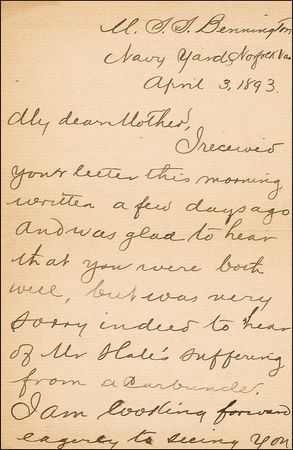 U. S. S. Bennington
Navy Yard, Norfolk Va
April 3, 1893.
My dear Mother,
I received
your letter this morning
written a few days ago
and was glad to hear
that you were both
well, but was very
sorry indeed to hear
of Mr Hale's suffering
from a carbuncle.
I am looking forward
eagerly to seeing you